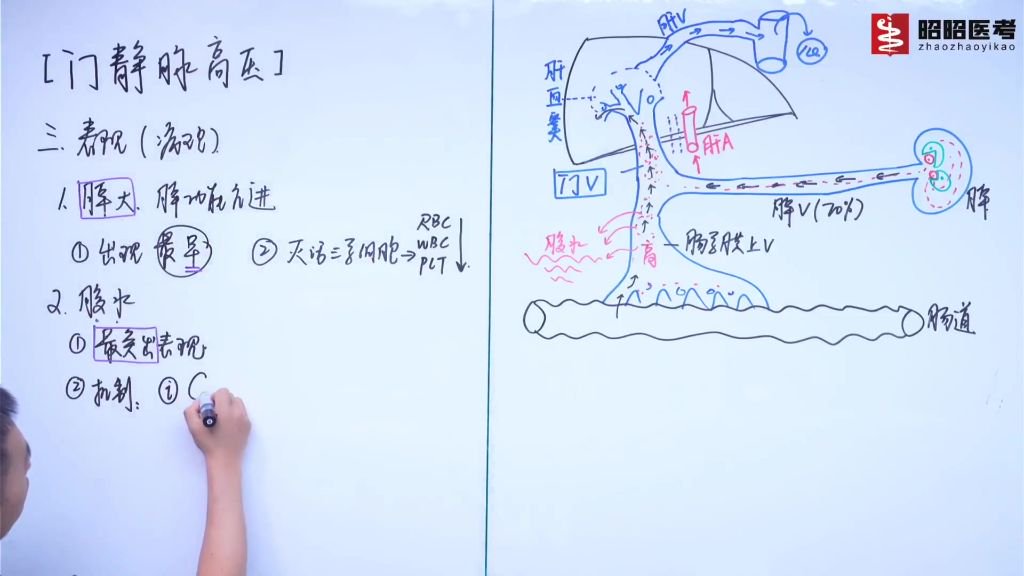 [门静脉高压]
三. 表现(病理)
1. 脾大、脾功能亢进
① 出现 最早
② 灭活三系细胞→
RBC
WBC
PLT
2. 腹水
① 最突出表现
② 机制: ⅰ (
昭昭医考
zhaozhaoyikao
肝V
肝血窦
肝A
门V
脾V(70%)
脾
腹水
高
肠系膜上V
肠道